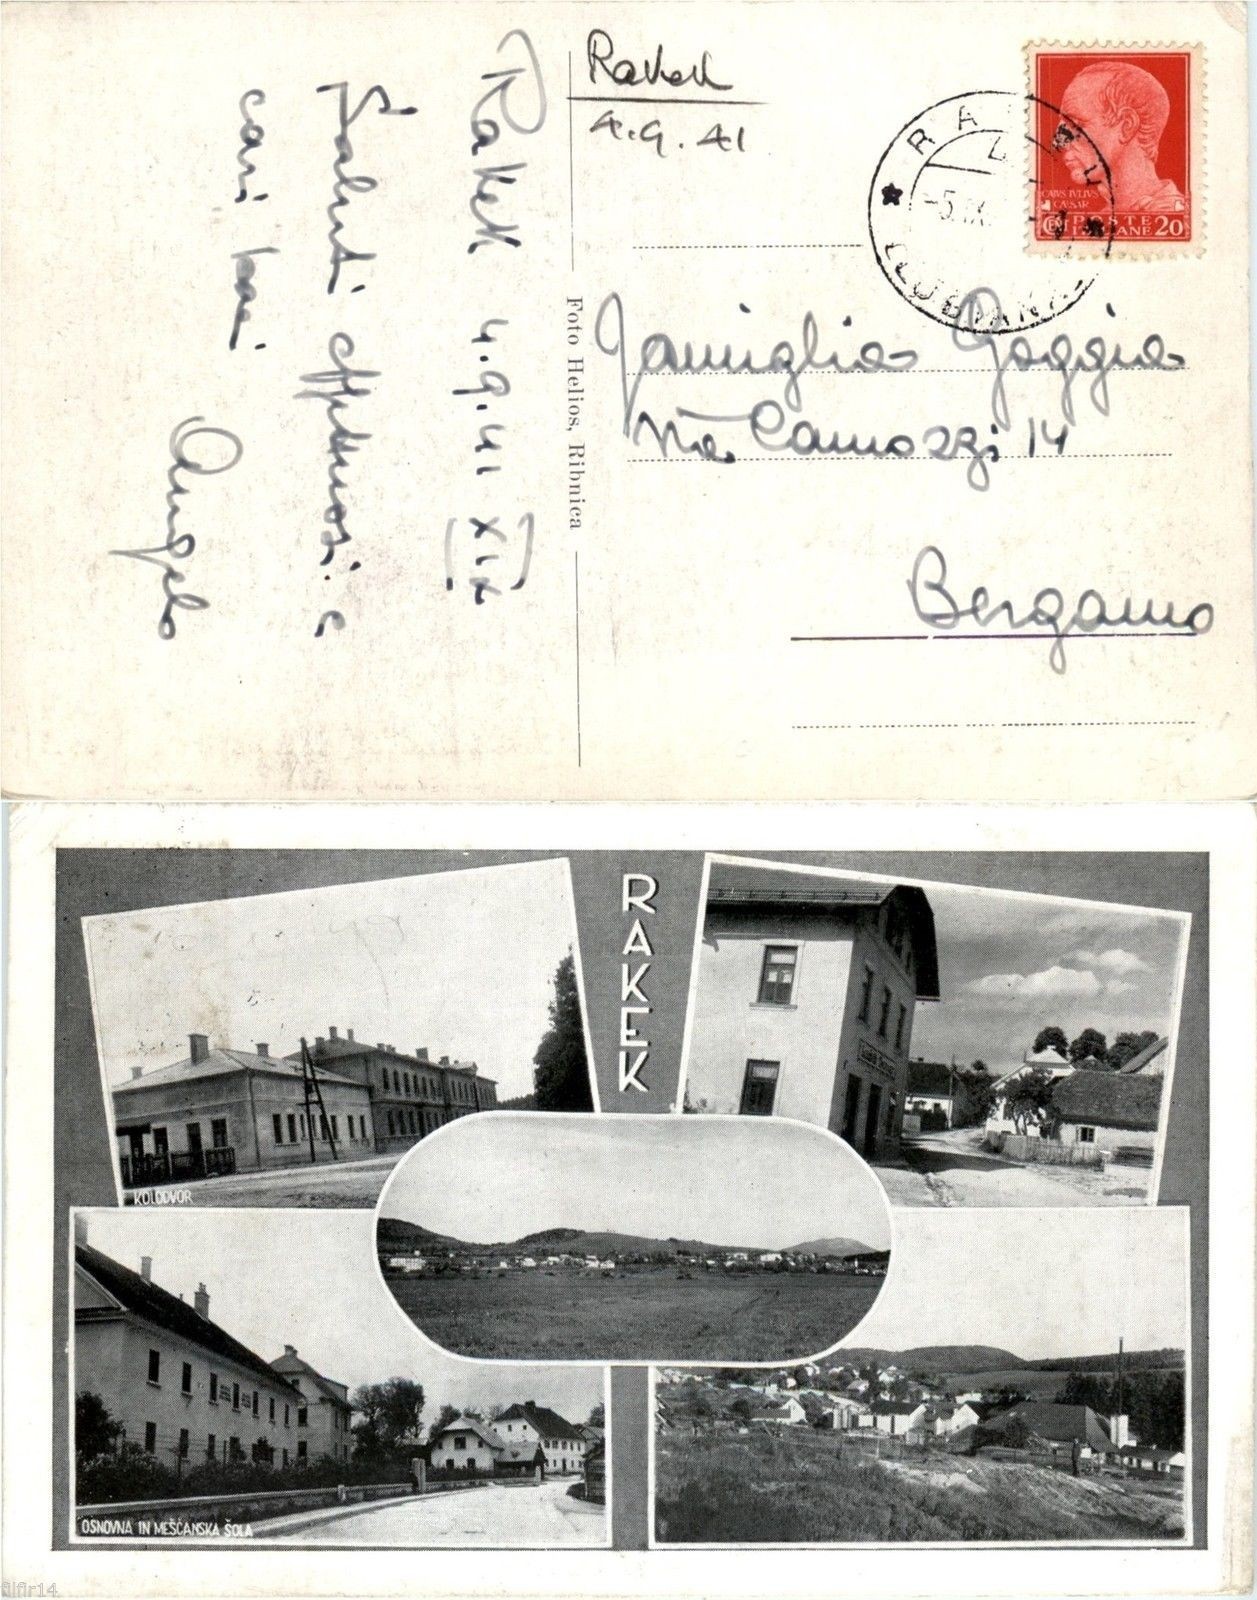 Rakek
4.9.41
Rakek 4.9.41 XIX
Saluti affettuosi e
cari baci
Angelo
Foto Helios, Ribnica
CAIVS IVLIVS
CÆSAR
POSTE
ITALIANE 20
RAKEK
-5.IX.
LJUBLJANA
Famiglia Goggia
Via Camozzi 14
Bergamo
RAKEK
KOLODVOR
OSNOVNA IN MEŠČANSKA ŠOLA
filfir14